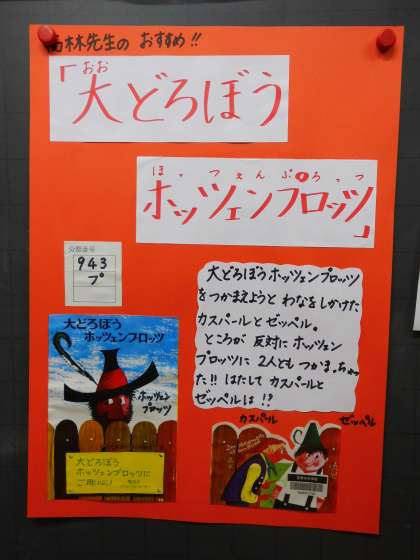 林先生の おすすめ!!
おお
「大どろぼう
ほっつぇんぷろっつ
ホッツェンプロッツ」
分類番号
943
プ
大どろぼうホッツェンプロッツ
をつかまえようと わなをしかけた
カスパールと ゼッペル。
ところが 反対に ホッツェン
プロッツに 2人とも つかまっちゃっ
た!! はたして カスパールと
ゼッペルは !?
大どろぼう
ホッツェンプロッツ
ホッツェン
プロッツ
大どろぼう
ホッツェンプロッツに
ご用心!
カスパール
ゼッペル